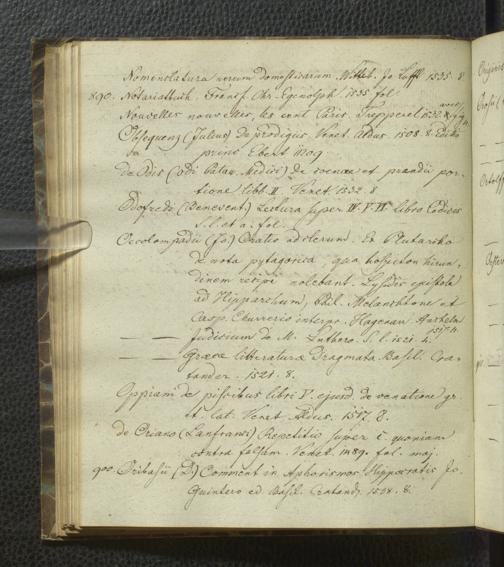 Nomenclatura rerum domesticarum. Witteb. Jo Lufft 1535. 8
890. Notariatbuch. Francf. Chr. Egenolph. 1535 fol.
Nouvelles nouvelles, les cent Paris. Trepperel 1532.
Obsequens (Julius) de prodigiis. Venet. Aldus 1508. 8. Editio
princ Ebert 1409
de Odis (Odi Patav. Medici) De coenae et prandii por-
tione libb. II. Venet 1532. 8
Odofredi (Benevent.) Lectura super libro Codicis
S. l. et a. fol.
Oecolompadii (Jo.) Oratio ad clerum. Ex Plutarcho
de nota pytagorica, qua hospitem hirun-
dinem recipi nolebant. Lysidis epistola
ad Hipparchum, Phil. Melanchtone et
Casp. Churrerio interpr. Hagenau Anshelm
1517. 4.
— — Judicium de M. Luthero. S. l. 1521. 4.
— — Graecae litteraturae Dragmata. Basil. Cra-
tander. 1521. 8.
Oppiani de piscibus libri V. ejusd. de venatione gr
et. lat. Venet Aldus. 1517. 8.
de Oriano (Lanfranci) Repetitio super c. quoniam
contra falsam. Venet. 1489. fol. maj.
900. Oribasii (D) Comment in Aphorismos Hippocratis Jo.
Guintero ed Basil. Cratand. 1538. 8.